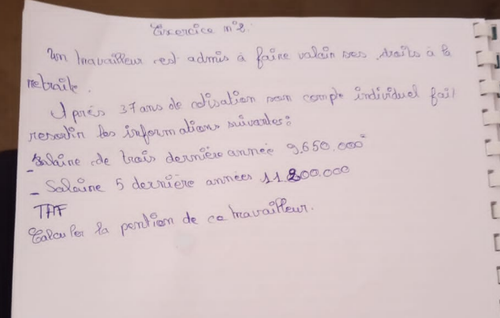 Exercice n°2:
Un travailleur est admis à faire valoir ses droits à la
retraite.
Après 37 ans de cotisation son compte individuel fait
ressortir les informations suivantes:
- Salaire de trois dernière année 9.650.000
- Salaire 5 dernière années 11 200.000
TAF
Calculer la pention de ce travailleur.